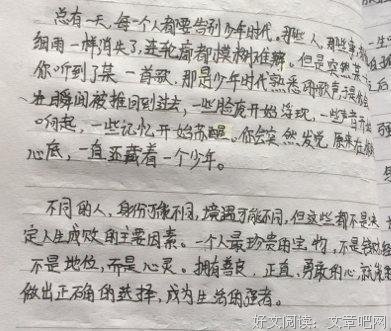 总有一天，每一个人都要告别少年时代。那些人，那些事，
细雨一样消失了，连轮廓都模糊难辨。但是突然某
你听到了某一首歌，那是少年时代熟悉的歌，于是你会
在瞬间被推回到过去，一些脸庞开始浮现，一些声音开始
响起，一些记忆开始苏醒。你会突然发觉，原来在你
心底，一直还藏着一个少年。
不同的人，身份可能不同，境遇可能不同，但这些都不是决
定人生成败的主要因素。一个人最珍贵的宝物，不是钱财
不是地位，而是心灵。拥有善良、正直、勇敢的心，就
做出正确的选择，成为生活的强者。
好文阅读：文章吧网